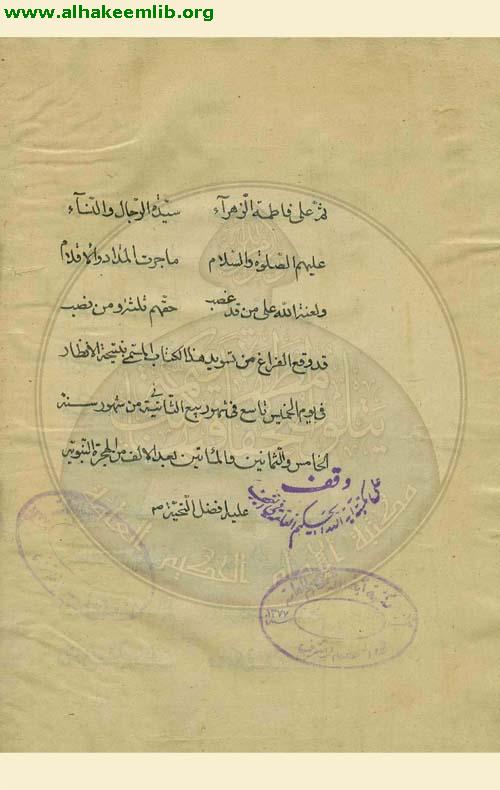 www.alhakeemlib.org
ثم على فاطمة الزهرآء سيدة الرجال والنسآء
عليهم الصلوة والسلام ماجرت المداد والاقلام
ولعنة الله على من قد غصب حقهم ثلثة ومن نصب
قد وقع الفراغ من تسويد هذا الكتاب المسمى بنتيجة الانظار
فى يوم الخميس تاسع فى شهور ربيع الثانية من شهور سنة
الخامس والثمانين والمأتين بعد الالف من الهجرة النبوية
عليه افضل التحية
وقف
على مكتبة اية الله الحكيم العامة
١٣٧٧